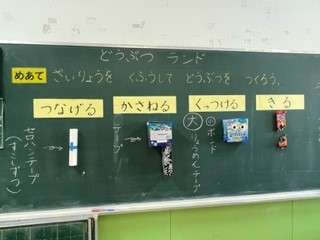 どうぶつ ランド
めあて ざいりょうを くふうして どうぶつを つくろう。
つなげる
かさねる
くっつける
きる
セロハンテープ
(すこしずつ)
テープ
大
小
ボンド
りょうめんテープ